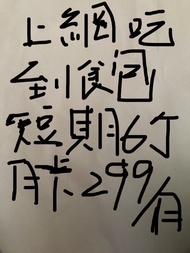 上網吃
到飽
短期6个
月卡299/月